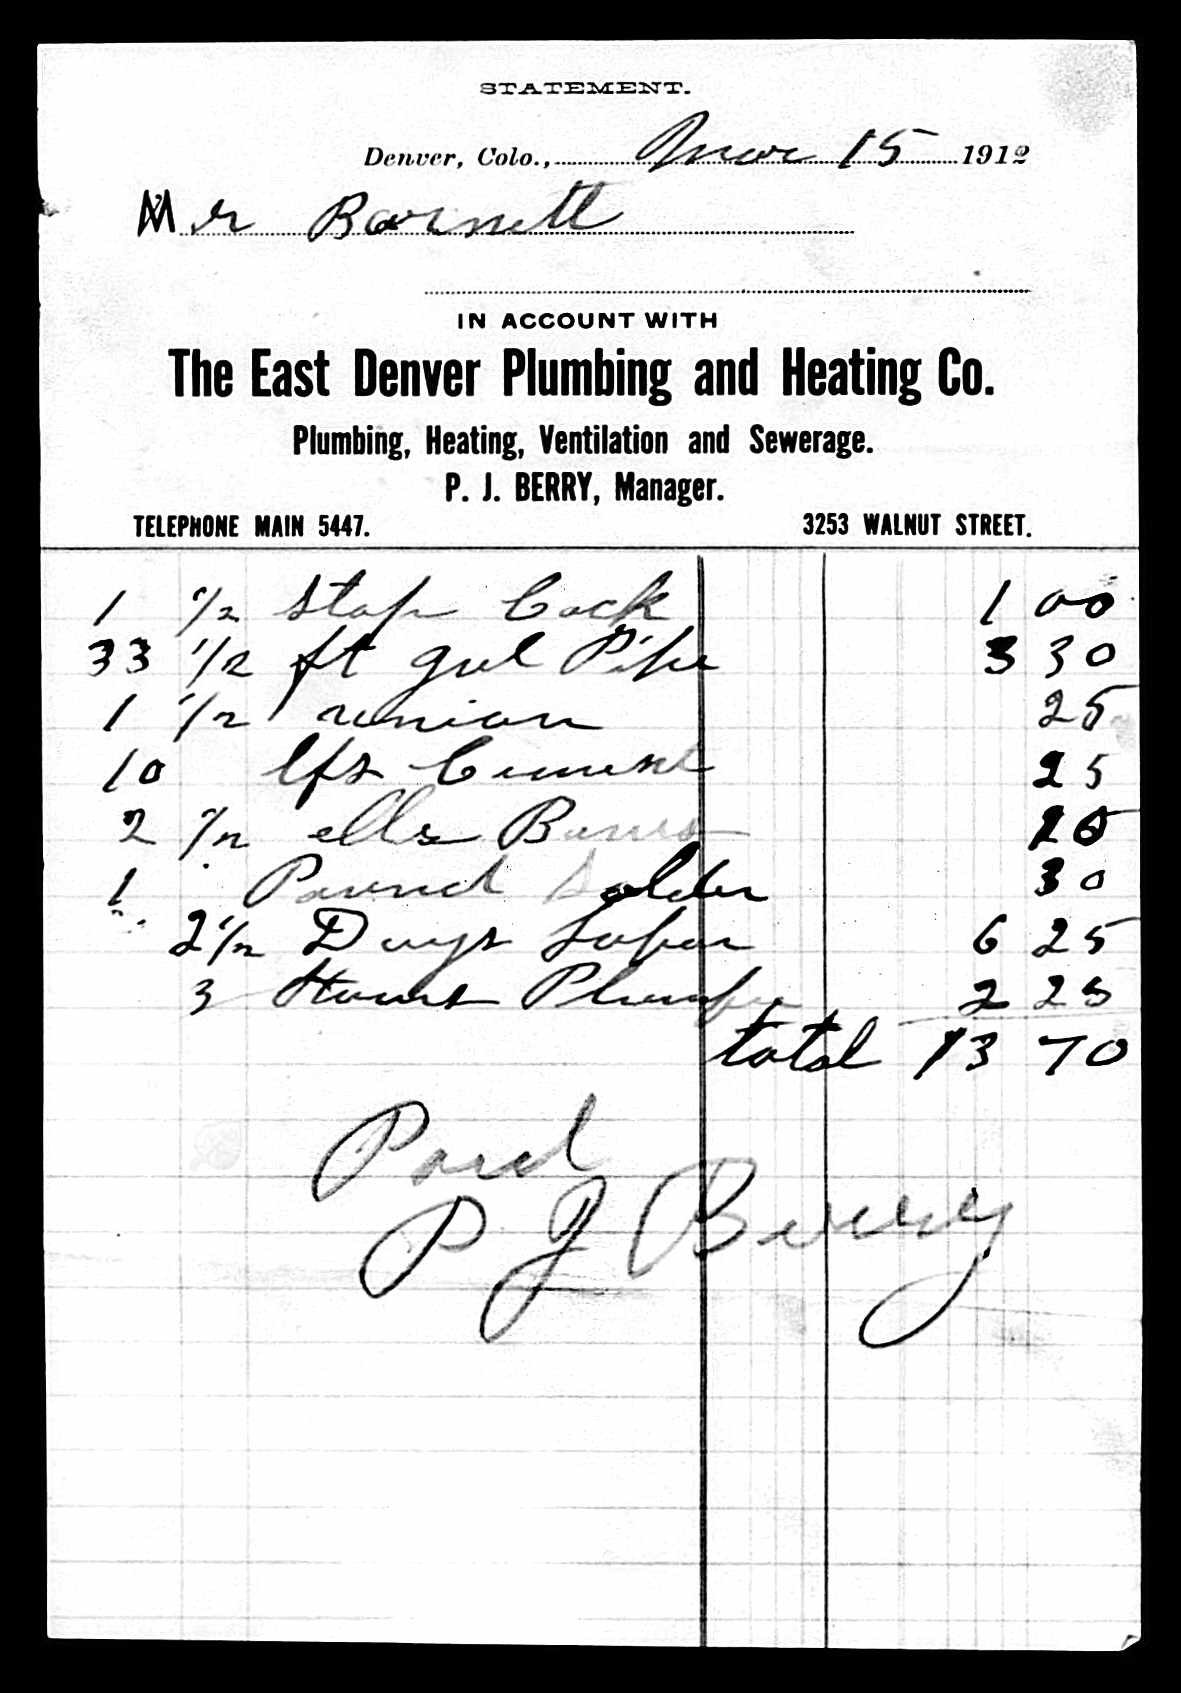 STATEMENT.
Denver, Colo., Mar 15 1912
Mr Barnett
IN ACCOUNT WITH
The East Denver Plumbing and Heating Co.
Plumbing, Heating, Ventilation and Sewerage.
P. J. BERRY, Manager.
TELEPHONE MAIN 5447. 3253 WALNUT STREET.
1 1/2 Stop Cock 1 00
33 1/2 ft gal Pipe 3 30
1 1/2 union 25
10 lbs Cement 25
2 1/2 ells 10
1 Pound Solder 30
2 1/2 Days Labor 6 25
3 Hours Plumber 2 25
total 13 70
Paid
P J Berry